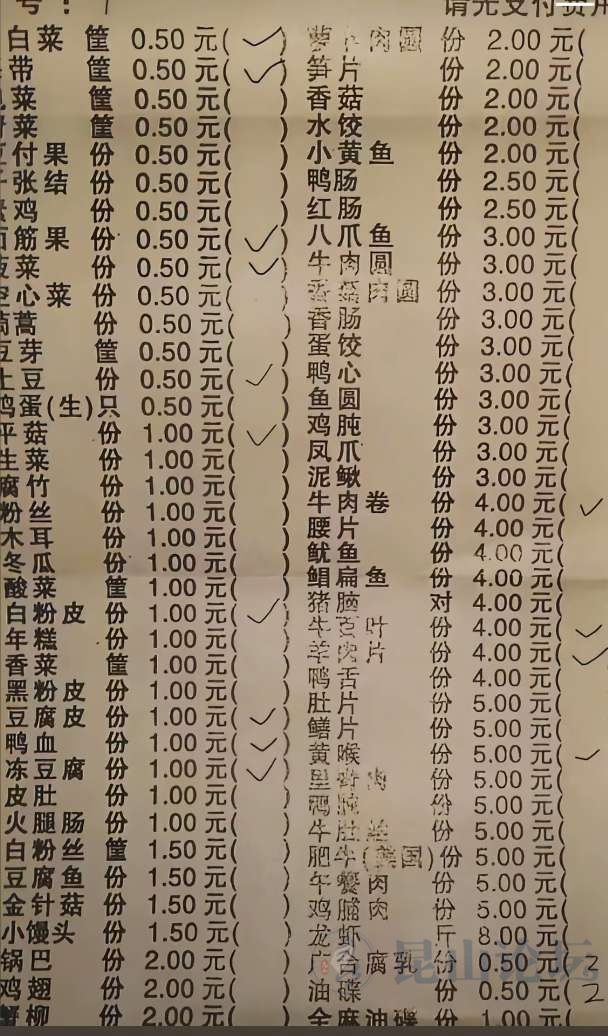 号：
白菜 筐 0.50元( ✓ )
带 筐 0.50元( ✓ )
菜 筐 0.50元( )
菜 筐 0.50元( )
豆付果 份 0.50元( )
张结 份 0.50元( )
鸡 份 0.50元( )
面筋果 份 0.50元( ✓ )
菠菜 份 0.50元( ✓ )
空心菜 份 0.50元( )
茼蒿 份 0.50元( )
豆芽 筐 0.50元( )
土豆 份 0.50元( ✓ )
鸡蛋(生)只 0.50元( )
平菇 份 1.00元( ✓ )
生菜 份 1.00元( )
腐竹 份 1.00元( )
粉丝 份 1.00元( )
木耳 份 1.00元( )
冬瓜 份 1.00元( )
酸菜 筐 1.00元( )
白粉皮 份 1.00元( ✓ )
年糕 份 1.00元( )
香菜 筐 1.00元( )
黑粉皮 份 1.00元( )
豆腐皮 份 1.00元( ✓ )
鸭血 份 1.00元( ✓ )
冻豆腐 份 1.00元( ✓ )
皮肚 份 1.00元( )
火腿肠 份 1.00元( )
白粉丝 筐 1.50元( )
豆腐鱼 份 1.50元( )
金针菇 份 1.50元( )
小馒头 份 1.50元( )
锅巴 份 2.00元( )
鸡翅 份 2.00元( )
蟹柳 份 2.00元( )
请先支付费用
萝卜肉圆 份 2.00元(
笋片 份 2.00元(
香菇 份 2.00元(
水饺 份 2.00元(
小黄鱼 份 2.00元(
鸭肠 份 2.50元(
红肠 份 2.50元(
八爪鱼 份 3.00元(
牛肉圆 份 3.00元(
香菜肉圆 份 3.00元(
香肠 份 3.00元(
蛋饺 份 3.00元(
鸭心 份 3.00元(
鱼圆 份 3.00元(
鸡肫 份 3.00元(
凤爪 份 3.00元(
泥鳅 份 3.00元(
牛肉卷 份 4.00元( ✓
腰片 份 4.00元(
鱿鱼 份 4.00元(
鲳扁鱼 份 4.00元(
猪脑 对 4.00元(
牛百叶 份 4.00元( ✓
羊肉片 份 4.00元( ✓
鸭舌 份 4.00元(
肚片 份 5.00元(
鳝片 份 5.00元(
黄喉 份 5.00元( ✓
里脊肉 份 5.00元(
鸭肫 份 5.00元(
牛肚 份 5.00元(
肥牛(美国)份 5.00元(
肉 份 5.00元(
鸡脯肉 份 5.00元(
龙虾 斤 8.00元(
广合腐乳 份 0.50元( 3
油碟 份 0.50元( 2
全麻油碟 份 1.00元(
昆山论坛